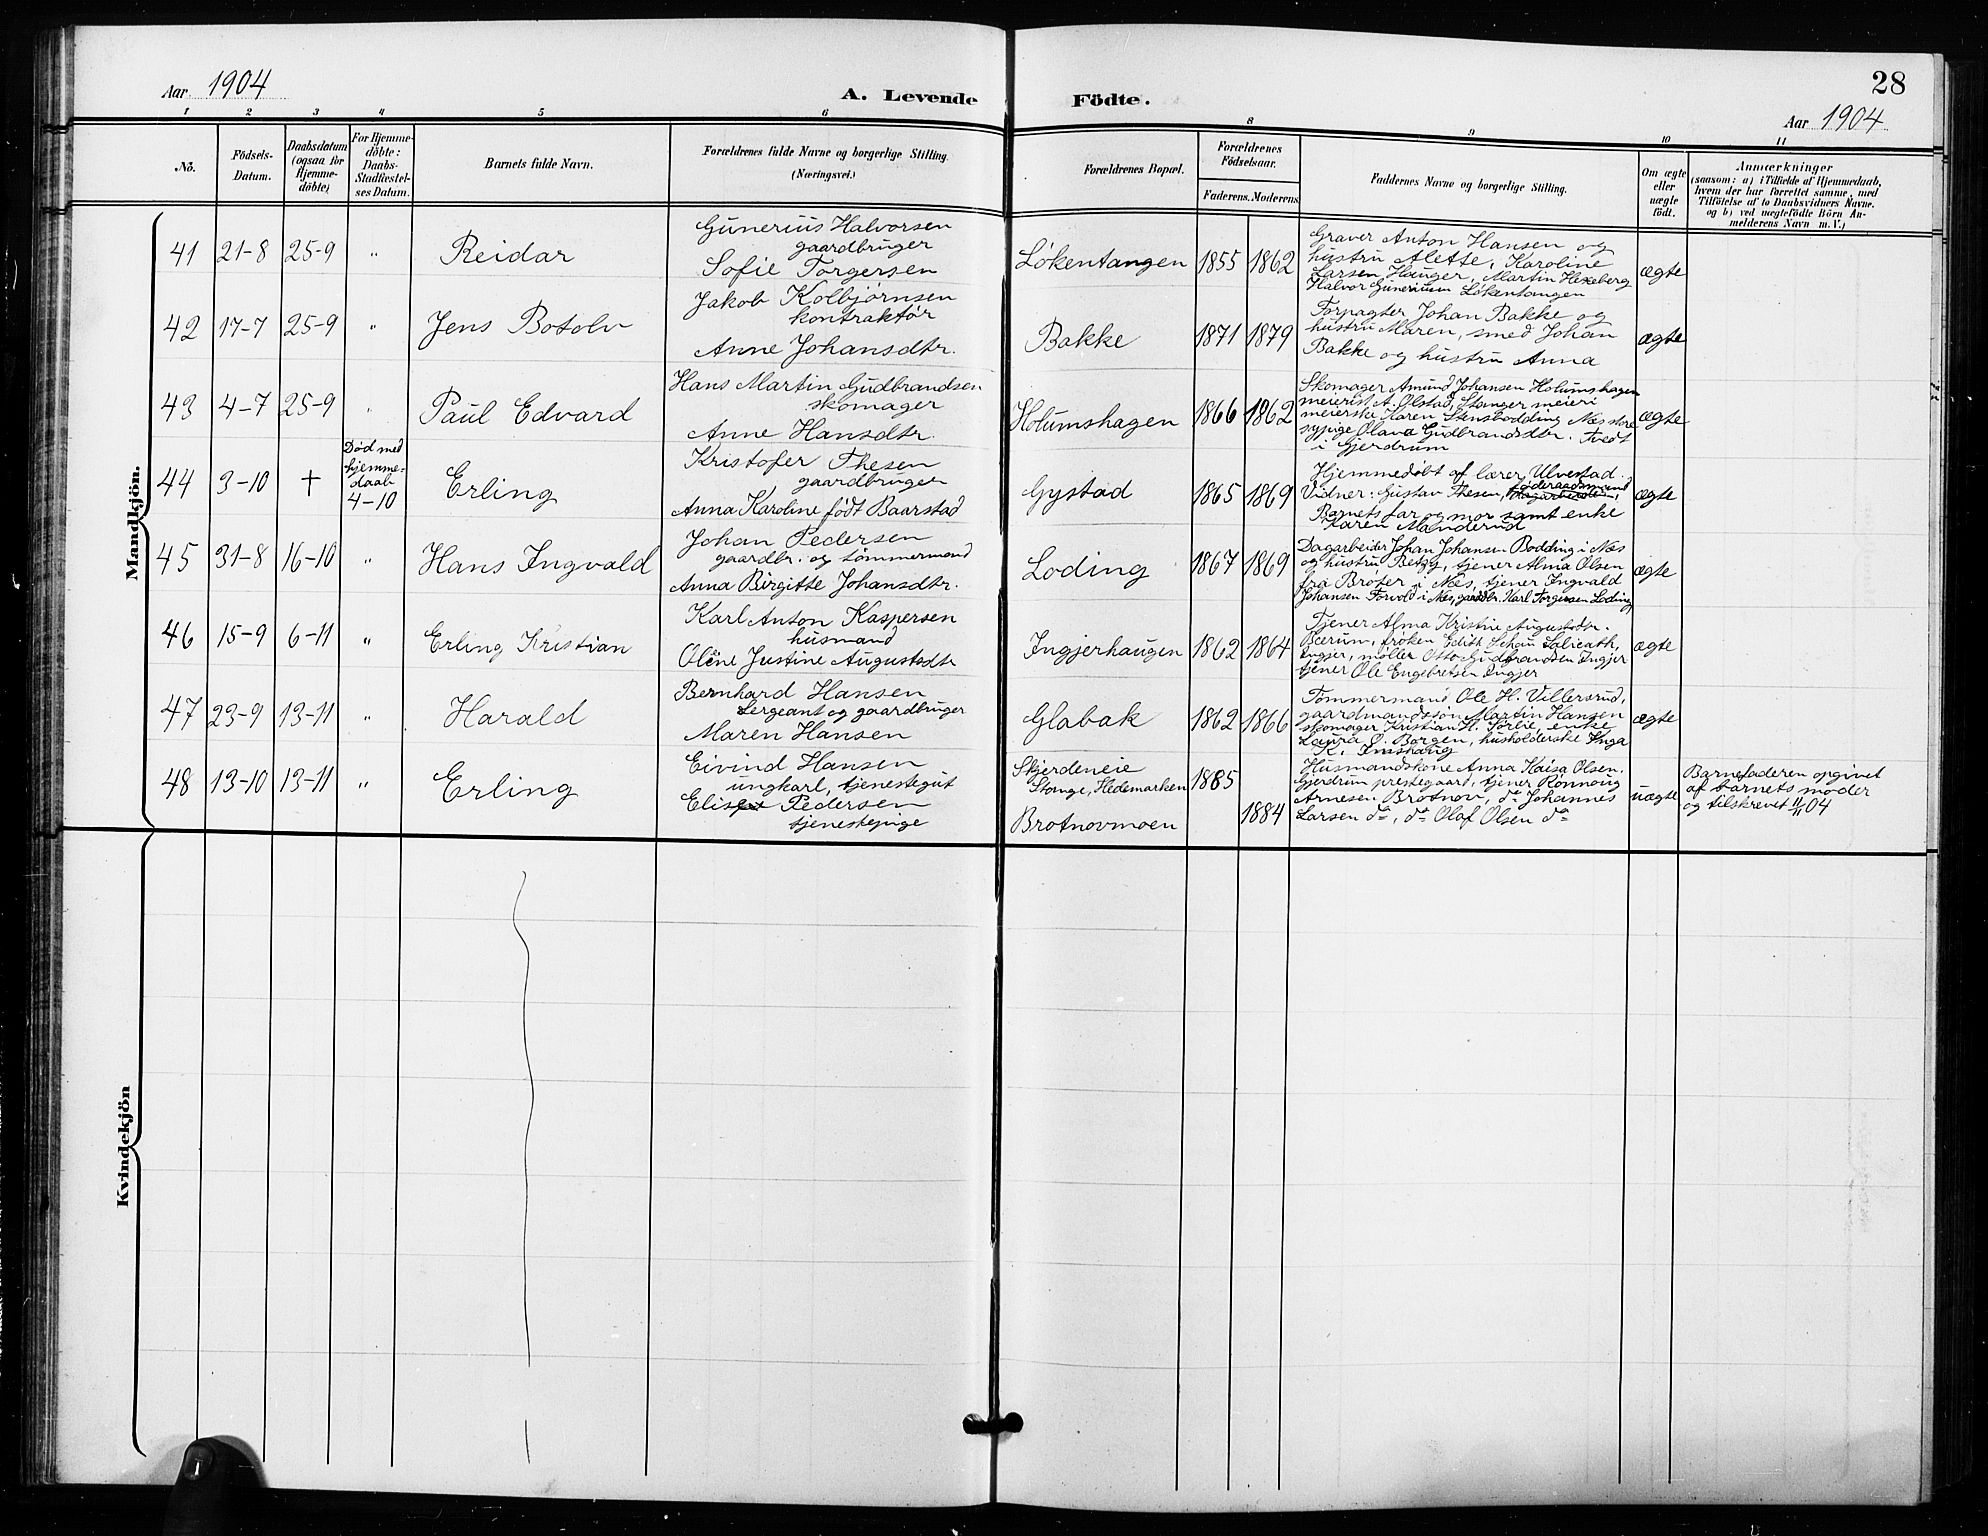 Aar 1904
A. Levende Födte.
28
Aar 1904
1 2 3 4 5 6 8 9 10 11
No.
Födsels-
Datum.
Daabsdatum
(ogsaa for
Hjemme-
döbte)
For Hjemme-
döbte:
Daabs-
Stadfæstel-
ses Datum.
Barnets fulde Navn.
Forældrenes fulde Navne og borgerlige Stilling.
(Næringsvei.)
Forældrenes Bopæl.
Forældrenes
Födselsaar.
Faderens. Moderens.
Faddernes Navne og borgerlige Stilling.
Om ægte
eller
uægte
født.
Anmærkninger
(saasom: a) i Tilfælde af Hjemmedaab,
hvem der har forrettet samme, med
Tilföielse af to Daabsvidners Navne.
og b) ved uægtefödte Börn An-
melderens Navn m. V.)
Mandkjön.
41 21-8 25-9 " Reidar
Gunerius Halvorsen
gaardbruger
Sofie Torgersen
Løkentangen 1855 1862
Graver Anton Hansen og
hustru Alette, Karoline
Larsen Hauger, Martin Hexeberg
Halvor Guneriusen Løkentangen
ægte
42 17-7 25-9 " Jens Botolv
Jakob Kolbjørnsen
kontraktør
Anne Johansdtr.
Bakke 1871 1879
Forpagter Johan Bakke og
hustru Maren, smed Johan
Bakke og hustru Anna
ægte
43 4-7 25-9 " Paul Edvard
Hans Martin Gudbrandsen
skomager
Anne Hansdtr.
Holumshagen 1866 1862
Skomager Amund Johansen Holumshagen
meierist A. Ølstad, Stanger meieri
meierske Karen Stensbodding Næs store
sypige Olava Gudbrandsdtr. Tvedt
i Gjerdrum
ægte
44 3-10 +
Død med
hjemme-
daab
4-10
Erling
Kristofer Thesen
gaardbruger
Anna Karoline født Baarstad
Gystad 1865 1869
Hjemmedøbt af lærer Ulvestad.
Vidner: Gustav Thesen, føderaadsmand
Barnets far og mor samt enke
Karen Manderud
ægte
45 31-8 16-10 " Hans Ingvald
Johan Pedersen
gaardbr. og tømmermand
Anna Birgitte Johansdtr.
Loding 1867 1869
Dagarbeider Johan Johansen Bodding i Næs
og hustru Betzy, tjener Alma Olsen
fra Brøter i Næs, tjener Ingvald
Johansen Forvold i Næs, gaardbr. Karl Torgersen Loding
ægte
46 15-9 6-11 " Erling Kristian
Karl Anton Kaspersen
husmand
Oline Justine Augustsdtr
Ingjerhaugen 1862 1864
Tjener Alma Kristine Augustsdtr.
Bærum, frøken Edith Schau Salicath,
Ingjer, møller Otto Gudbrandsen Ingjer
tjener Ole Engebretsen Ingjer
ægte
47 23-9 13-11 " Harald
Bernhard Hansen
Sergeant og gaardbruger
Maren Hansen
Glabak 1862 1866
Tømmermand Ole H. Villersrud,
gaardmandssøn Martin Hansen
skomager Kristian H. Sørlie, enke
Laura O. Borgen, husholderske Inga
K. Imshaug
ægte
48 13-10 13-11 " Erling
Eivind Hansen
ungkarl, tjenestegut
Elisbet Pedersen
tjenestepige
Skjerdeneie
Stange, Hedemarken 1885
Brotnovmoen 1884
Husmandskone Anna Kaisa Olsen.
Gjerdrum prestegaard, tjener Rønnoug
Arnesen Brotnov, do Johannes
Larsen do, do Olaf Olsen do
uægte
Barnefaderen opgivet
af barnets moder
og tilskrevet 11/11 04
Kvindekjön